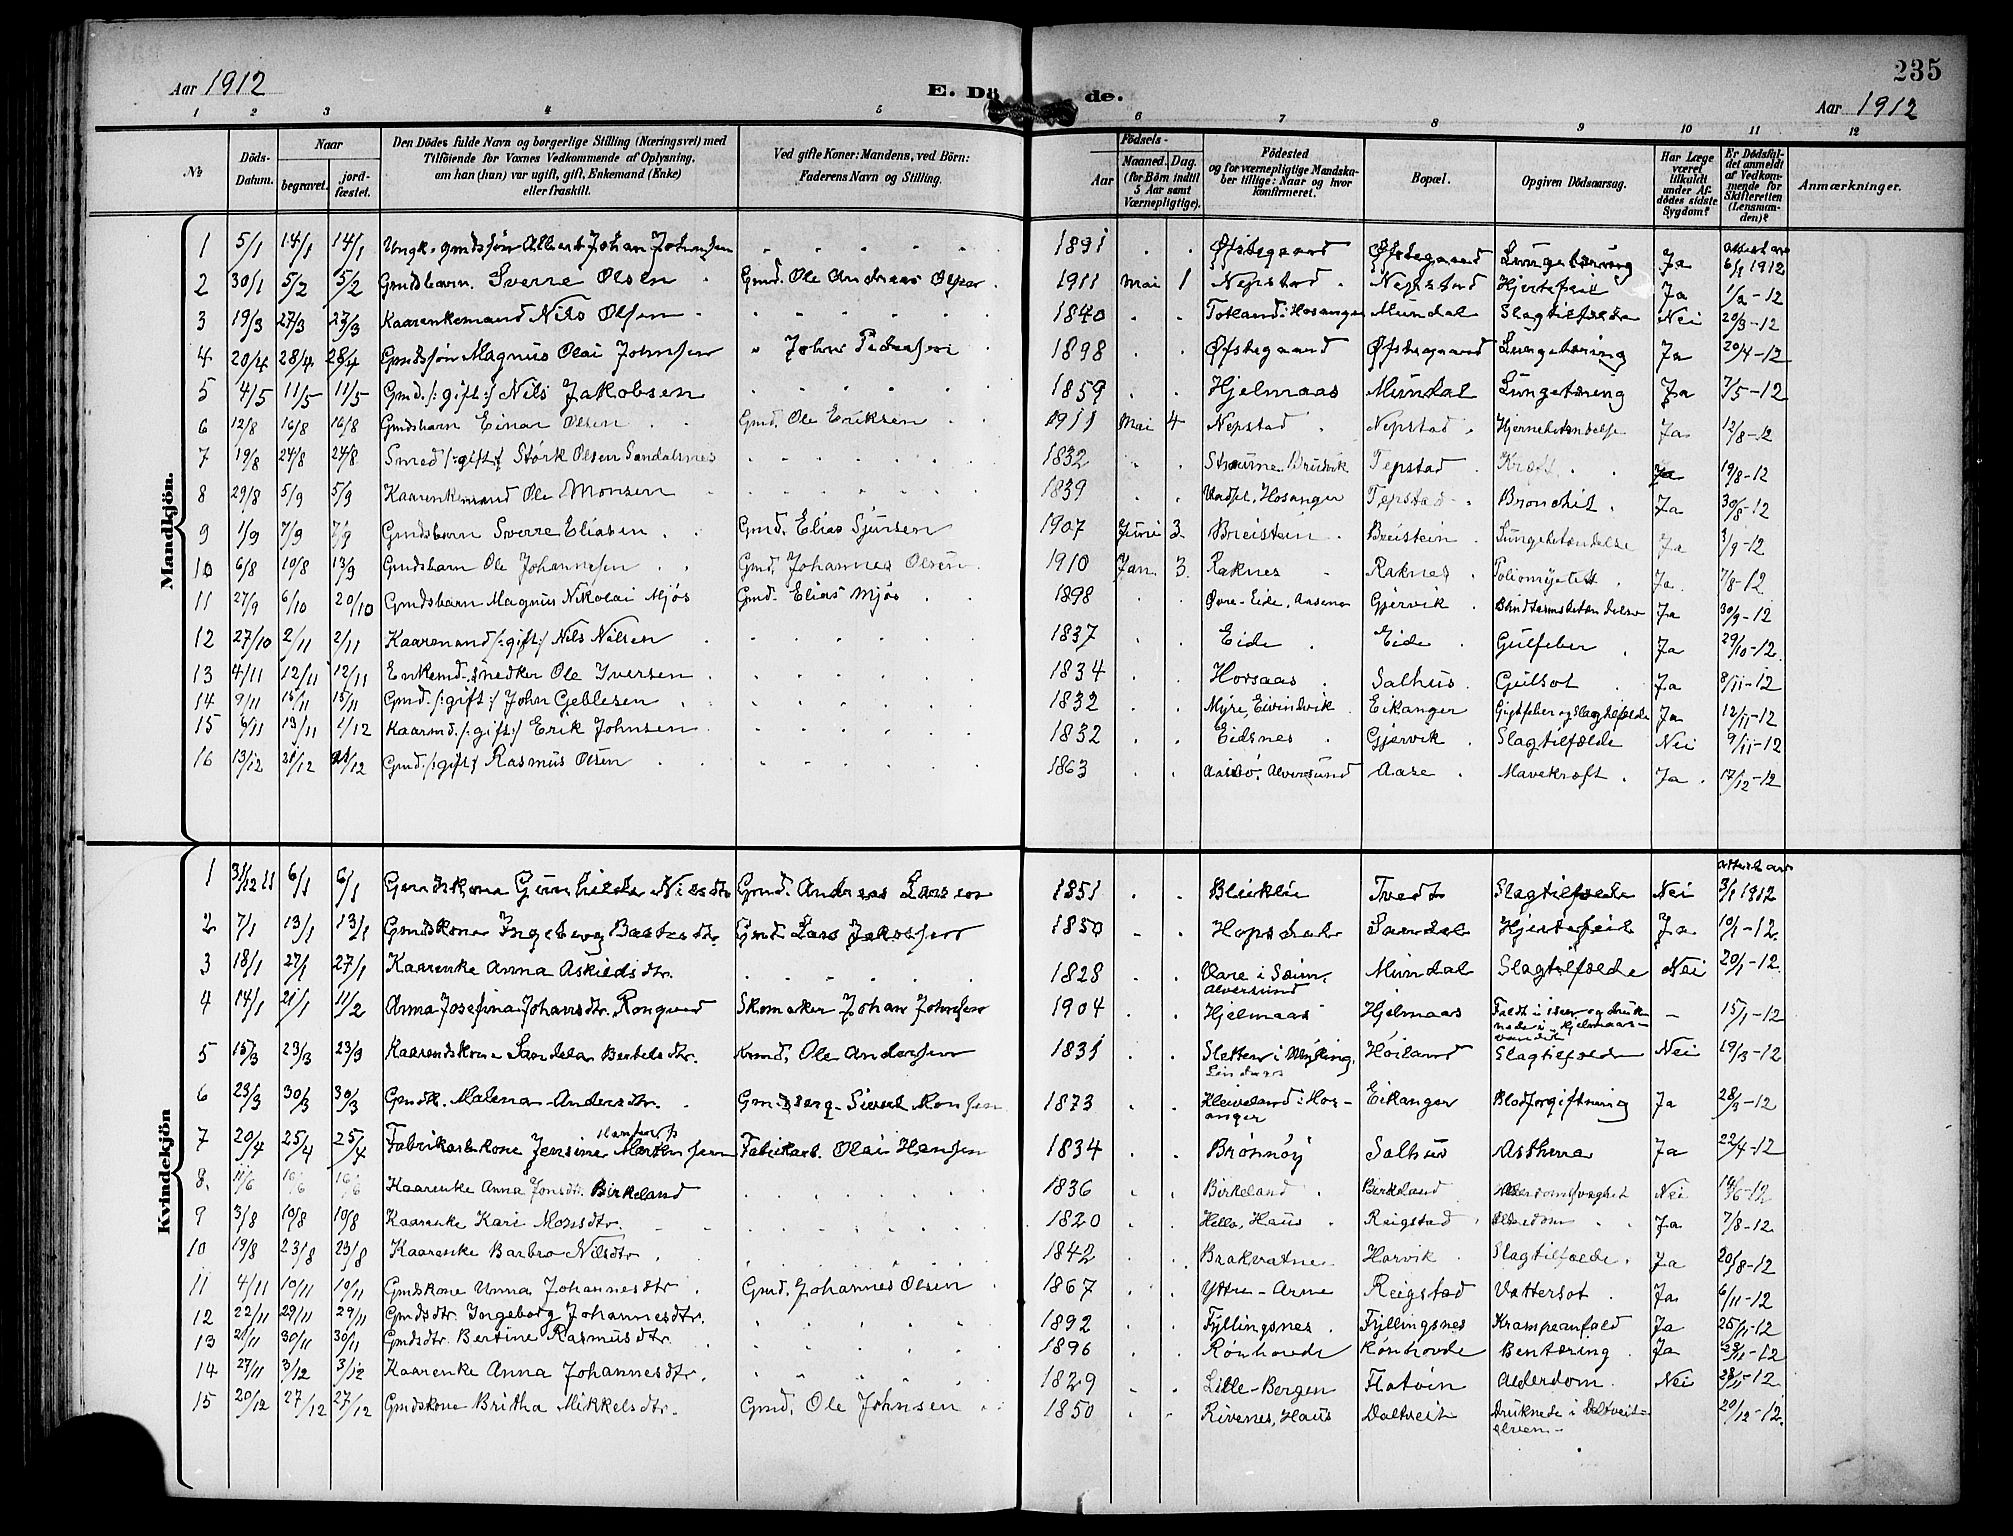 235
Aar 1912
E. Döde.
Aar 1912
1 2 3 4 5 6 7 8 9 10 11 12
No
Döds-Datum.
Naar
begravet.
jordfæstet.
Den Dödes fulde Navn og borgerlige Stilling (Næringsvei) med Tilföiende for Voxnes Vedkommende af Oplysning, om han (hun) var ugift, gift, Enkemand (Enke) eller fraskilt.
Ved gifte Koner: Mandens, ved Börn: Faderens Navn og Stilling.
Födsels-
Aar
Maaned. Dag.
(for Börn indtil 5 Aar samt Værnepligtige).
Födested og for værnepligtige Mandskaber tillige: Naar og hvor konfirmeret.
Bopæl.
Opgiven Dödsaarsag.
Har Læge været tilkaldt under Afdödes sidste Sygdom?
Er Dödsfaldet anmeldt af Vedkommende for Skifteretten (Lensmanden)?
Anmærkninger.
Mandkjön.
1 5/1 14/1 14/1 Ungk. gmdssøn Albert Johan Johnsen 1891 Øfstegaard Øfstegaard Lungetæring Ja 6/1 1912
2 30/1 5/2 5/2 Gmdsbarn. Sverre Olsen Gmd. Ole Andreas Olsen 1911 Mai 1 Nepstad Nepstad Hjertefeil Ja 1/2-12
3 19/3 27/3 27/3 Kaarenkemand Nils Olsen 1840 Totland i Hosanger Mundal Slagtilfælde Nei 20/3-12
4 20/4 28/4 28/4 Gmdssøn Magnus Olai Johnsen " John Pedersen 1898 Øfstegaard Øfstegaard Lungetæring Ja 20/4-12
5 4/5 11/5 11/5 Gmd. /:gift:/ Nils Jakobsen 1859 Hjelmaas Mundal Lungetæring Ja 7/5-12
6 12/8 16/8 16/8 Gmdsbarn Einar Olsen Gmd. Ole Eriksen 1911 Mai 4 Nepstad Nepstad Hjernebetændelse Ja 12/8-12
7 19/8 24/8 24/8 Smed /:gift:/ Størk Olsen Sandalsnes 1832 Bruvik Tepstad Kræft Ja 19/8-12
8 29/8 5/9 5/9 Kaarenkemand Ole Monsen 1839 Hosanger Tepstad Bronchit Ja 30/8-12
9 1/9 7/9 7/9 Gmdsbarn Sverre Eliasen Gmd. Elias Sjursen 1907 Juni 3 Breistein Breistein Lungebetændelse Ja 3/9-12
10 6/8 10/8 13/9 Gmdsbarn Ole Johannesen Gmd. Johannes Olsen 1910 Jan. 3 Raknes Raknes Ja 7/8-12
11 27/9 6/10 20/10 Gmdsbarn Magnus Nikolai Mjøs Gmd. Elias Mjøs 1898 Øvre-Eide, Aasene Gjervik Blindtarmsbetændelse Ja 30/9-12
12 27/10 2/11 2/11 Kaarmand /:gift:/ Nils Nilsen 1837 Eide Eide Gulfeber Ja 29/10-12
13 4/11 12/11 12/11 Enkemd. snedker Ole Iversen 1834 Horsaas Salhus Gulsot Ja 8/11-12
14 9/11 15/11 15/11 Gmd. /:gift:/ John Geblesen 1832 Myre, Eivindvik Eikanger Gigtfeber og Slagtilfælde Ja 12/11-12
15 6/11 13/11 1/12 Kaarmd. /:gift:/ Erik Johnsen 1832 Eidsnes Gjervik Slagtilfælde Nei 9/11-12
16 13/12 21/12 21/12 Gmd. /:gift:/ Rasmus Olsen 1863 Alversund Aase Mavekræft Ja 17/12-12
Kvindekjön
1 31/12 11 6/1 6/1 Gmdskone Gunhilda Nilsdtr Gmd. Andreas Larsen 1851 Bleiklie Tvedt Slagtilfælde Nei 3/1 1912
2 7/1 13/1 13/1 Gmdskone Ingeborg Gmd. Lars Jakobsen 1850 Hopsdal Sandal Hjertefeil Ja 10/1-12
3 18/1 27/1 27/1 Kaarenke Anna Askildsdtr. 1828 Vare i Sæim, Alversund Mundal Slagtilfælde Nei 20/1-12
4 14/1 21/1 11/2 Anna Josefina Johansdtr. Rongved Skomaker Johan Johnsen 1904 Hjelmaas Hjelmaas Faldt i isen og druknede i Hjelmaasvandet - 15/1-12
5 15/3 23/3 23/3 Kaarmdskone Sandela Bertelsdtr. Krmd. Ole Andersen 1831 Sletten i Mykling, Lindaas Høiland Slagtilfælde Nei 19/3-12
6 23/3 30/3 30/3 Gmdk. Malena Andersdtr. Sivert Monsen 1873 Kleiveland i Hosanger Eikanger Blodforgiftning Ja 28/3-12
7 20/4 25/4 25/4 Fabrikarb.kone Jensine Martha Hansen Fabrikarb. Olai Hansen 1834 Brønnøy Salhus Asthma Ja 22/4-12
8. 11/6 16/6 16/6 Kaarenke Anna Jonsdtr. Birkeland 1836 Birkeland Birkeland Alderdomssvaghet Nei 14/6-12
9 3/8 10/8 10/8 Kaarenke Kari Monsdtr. 1820 Hella, Haus Reigstad Alderdom Ja 7/8-12
10 19/8 23/8 23/8 Kaarenke Barbro Nilsdtr. 1842 Brakvatne Horvik Slagtilfælde Ja 20/8-12
11 4/11 10/11 10/11 Gmdskone Anna Johannesdtr Gmd. Johannes Olsen 1867 Yttre-Arne Reigstad Vattersot Ja 6/11-12
12 22/11 29/11 29/11 Gmdsdtr. Ingeborg Johannesdtr. 1892 Fyllingsnes Fyllingsnes Krampeanfald Ja 25/11-12
13 21/11 30/11 30/11 Gmdsdtr. Bertine Rasmusdtr. 1896 Rønhovde Rønhovde Bentæring Ja
14 27/11 3/12 3/12 Kaarenke Anna Johannesdtr. 1829 Lille-Bergen Flatøin Alderdom Nei 28/11-12
15 20/12 27/12 27/12 Gmdskone Britha Mikkelsdtr. Gmd. Ole Johnsen 1850 Rivenes, Haus Daltveit Druknede i Daltveitelven 20/12-12